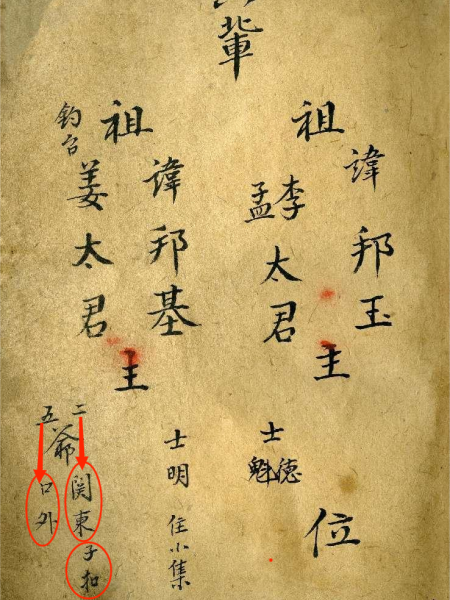 輩
祖
諱邦玉
李孟太君
主
士德魁
位
祖
諱邦基
钓台
姜太君
主
士明 住小集
二五爺
関東子扣
口外